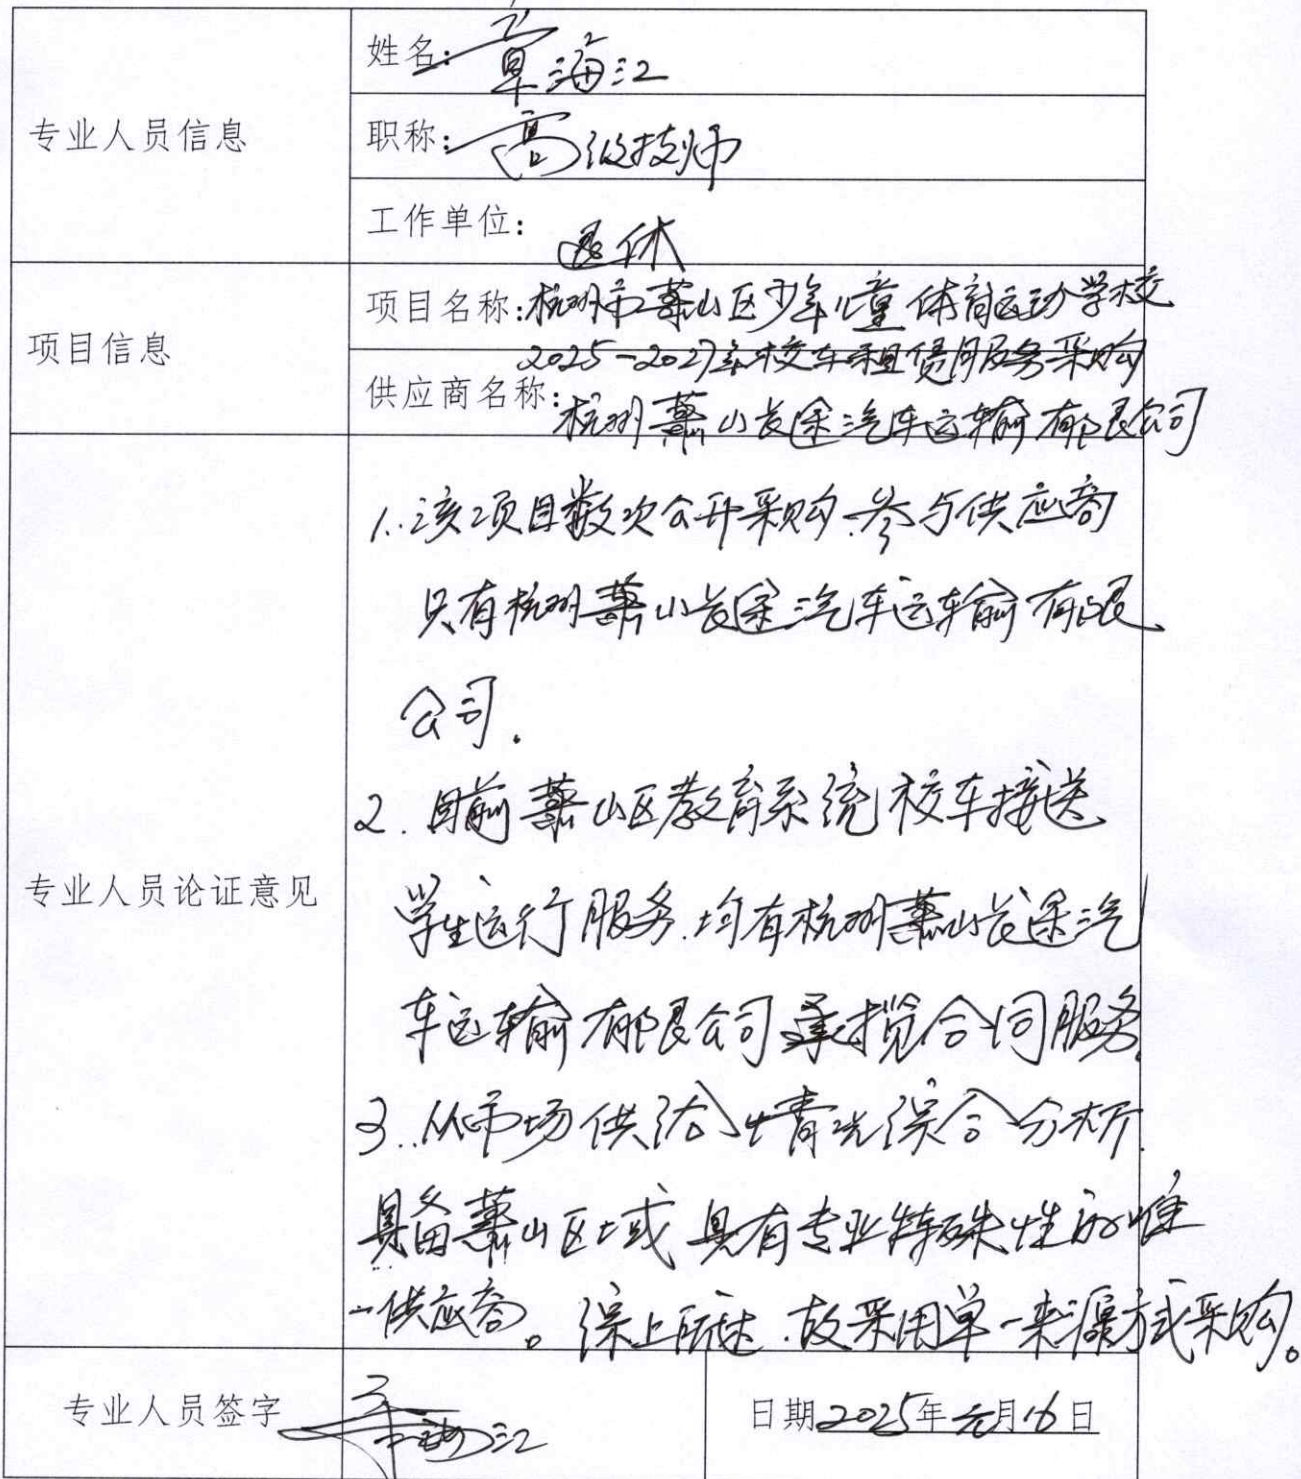 专业人员信息
姓名:章海江
职称:高级技师
工作单位:退休
项目信息
项目名称:杭州市萧山区少年儿童体育运动学校
2025-2027年校车租赁服务采购
供应商名称:杭州萧山长途汽车运输有限公司
专业人员论证意见
1.该项目数次公开采购.参与供应商
只有杭州萧山长途汽车运输有限
公司.
2.目前萧山区教育系统校车接送
学生运行服务.均有杭州萧山长途汽
车运输有限公司承揽合同服务.
3.从市场供给情况综合分析.
具备萧山区域具有专业特殊性的唯
一供应商。综上所述.故采用单一来源方式采购。
专业人员签字 章海江
日期2025年元月16日